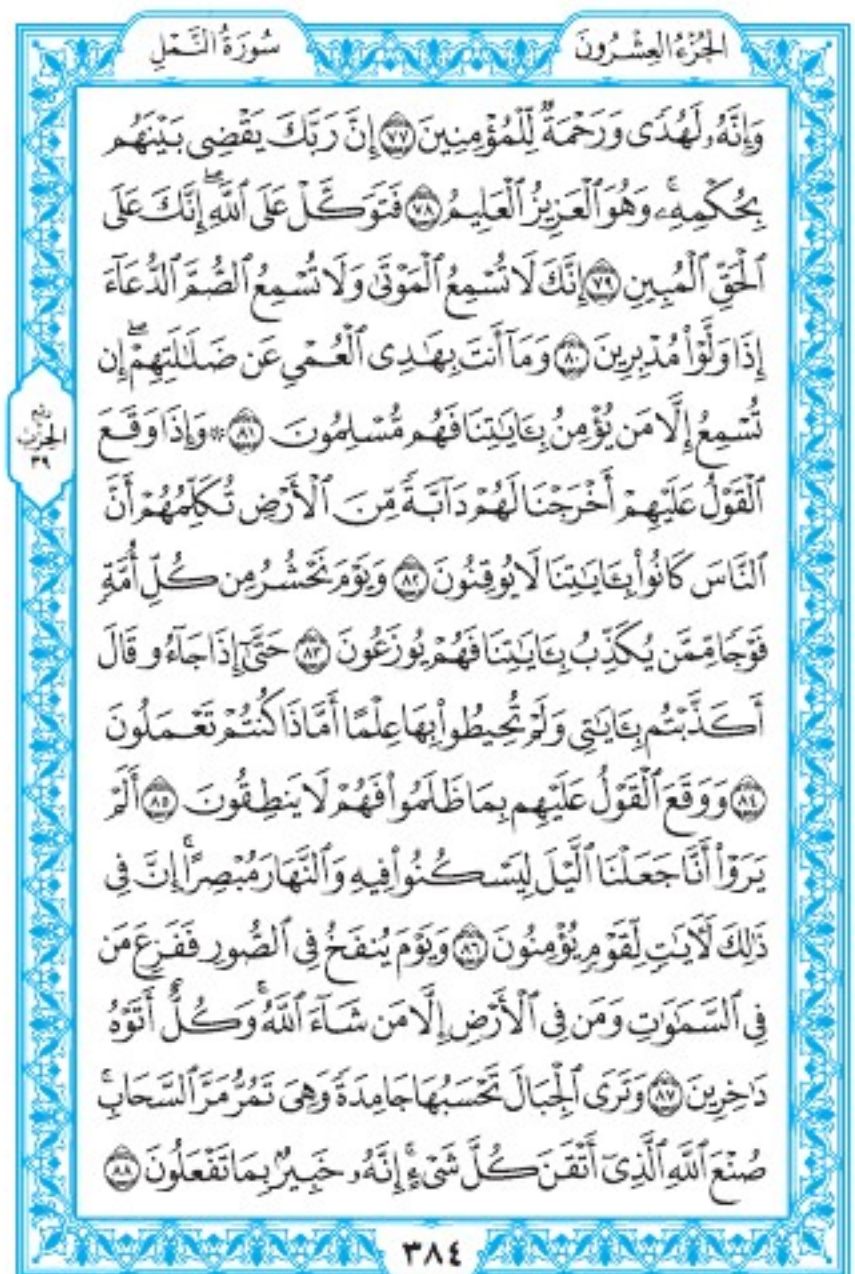 الجُزْءُ العِشْرُونَ
سُورَةُ النَّمْلِ
وَإِنَّهُۥ لَهُدًى وَرَحْمَةٌ لِّلْمُؤْمِنِينَ ٧٧ إِنَّ رَبَّكَ يَقْضِى بَيْنَهُم
بِحُكْمِهِۦۚ وَهُوَ ٱلْعَزِيزُ ٱلْعَلِيمُ ٧٨ فَتَوَكَّلْ عَلَى ٱللَّهِۖ إِنَّكَ عَلَى
ٱلْحَقِّ ٱلْمُبِينِ ٧٩ إِنَّكَ لَا تُسْمِعُ ٱلْمَوْتَىٰ وَلَا تُسْمِعُ ٱلصُّمَّ ٱلدُّعَآءَ
إِذَا وَلَّوْا۟ مُدْبِرِينَ ٨٠ وَمَآ أَنتَ بِهَٰدِى ٱلْعُمْىِ عَن ضَلَٰلَتِهِمْۖ إِن
تُسْمِعُ إِلَّا مَن يُؤْمِنُ بِـَٔايَٰتِنَا فَهُم مُّسْلِمُونَ ٨١ ۞ وَإِذَا وَقَعَ
ٱلْقَوْلُ عَلَيْهِمْ أَخْرَجْنَا لَهُمْ دَآبَّةً مِّنَ ٱلْأَرْضِ تُكَلِّمُهُمْ أَنَّ
ٱلنَّاسَ كَانُوا۟ بِـَٔايَٰتِنَا لَا يُوقِنُونَ ٨٢ وَيَوْمَ نَحْشُرُ مِن كُلِّ أُمَّةٍ
فَوْجًا مِّمَّن يُكَذِّبُ بِـَٔايَٰتِنَا فَهُمْ يُوزَعُونَ ٨٣ حَتَّىٰٓ إِذَا جَآءُو قَالَ
أَكَذَّبْتُم بِـَٔايَٰتِى وَلَمْ تُحِيطُوا۟ بِهَا عِلْمًا أَمَّاذَا كُنتُمْ تَعْمَلُونَ
٨٤ وَوَقَعَ ٱلْقَوْلُ عَلَيْهِم بِمَا ظَلَمُوا۟ فَهُمْ لَا يَنطِقُونَ ٨٥ أَلَمْ
يَرَوْا۟ أَنَّا جَعَلْنَا ٱلَّيْلَ لِيَسْكُنُوا۟ فِيهِ وَٱلنَّهَارَ مُبْصِرًاۚ إِنَّ فِى
ذَٰلِكَ لَـَٔايَٰتٍ لِّقَوْمٍ يُؤْمِنُونَ ٨٦ وَيَوْمَ يُنفَخُ فِى ٱلصُّورِ فَفَزِعَ مَن
فِى ٱلسَّمَٰوَٰتِ وَمَن فِى ٱلْأَرْضِ إِلَّا مَن شَآءَ ٱللَّهُۚ وَكُلٌّ أَتَوْهُ
دَٰخِرِينَ ٨٧ وَتَرَى ٱلْجِبَالَ تَحْسَبُهَا جَامِدَةً وَهِىَ تَمُرُّ مَرَّ ٱلسَّحَابِۚ
صُنْعَ ٱللَّهِ ٱلَّذِىٓ أَتْقَنَ كُلَّ شَىْءٍۚ إِنَّهُۥ خَبِيرٌۢ بِمَا تَفْعَلُونَ ٨٨
ربع
الحزب
٣٩
٣٨٤